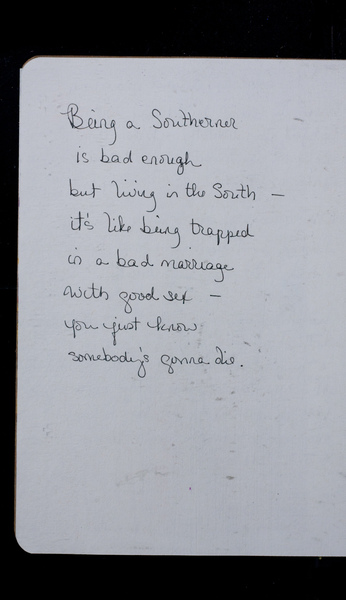 Being a Southerner
is bad enough
but living in the South —
it's like being trapped
in a bad marriage
with good sex —
you just know
somebody's gonna die.